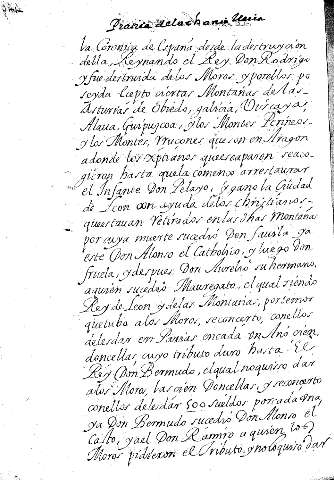 la Coronica de España desde la destruycion
della, Reynando el Rey Don Rodrigo
y fue destruida de los Moros, y por ellos po
seyda Cepto ciertas Montañas de las
Asturias de Obiedo, galicia, Viscaya,
Alaua, Guipuzcoa, y los Montes Perineos
y los Montes, que son en Aragon
adonde los Xptianos que escaparon se aco
gieron hasta que la comenzo arrestaurar
el Infante Don Pelayo, y gano la Ciudad
de Leon con ayuda de los christianos
que estauan Retirados en las dhas Montañas
por cuya muerte sucedio Don fauila ya
este Don Alonso el Catholico, y luego Don
fruela, y despues Don Aurelio su hermano,
a quien sucedio Mauregato, el qual siendo
Rey de Leon y delas Montañas, por temor
que tubo alos Moros, se concerto, con ellos
de les dar en Parias en cada Vn Año cien
doncellas, cuyo tributo duro hasta El
Rey Don Bermudo, el qual no quiso dar
alos Moros, las cien Doncellas, y se concerto
con ellos deles dar 500 sueldos por cada Vna,
ya Don Bermudo sucedio Don Alonso el
Casto, y a el Don Ramiro a quien los
Moros pidieron el Tributo, y no lo quiso dar